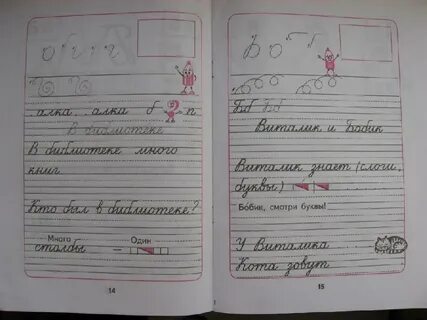 алка алки б п
В библиотеке
В библиотеке много
книг
Кто был в библиотеке?
Много Один
столбы –
14
Бб Бб
Виталик и Бобик
Виталик знает (слоги,
буквы)
Бобик, смотри буквы!
У Виталика
Кота зовут
15